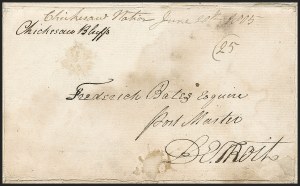 Chickesaw Nation June 15th 1805
Chickesaw Bluffs
25
Frederick Bates Esquire
Post Master
Detroit